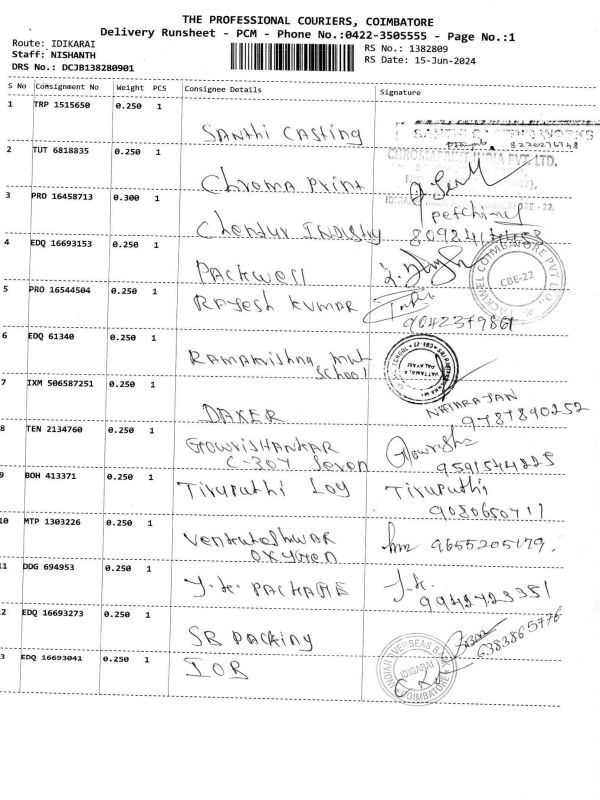 THE PROFESSIONAL COURIERS, COIMBATORE
Delivery Runsheet - PCM - Phone No.:0422-3505555 - Page No.:1
Route: IDIKARAI
RS No.: 1382809
Staff: NISHANTH
RS Date: 15-Jun-2024
DRS No.: DCJB138280901
S No Consignment No Weight PCS Consignee Details Signature
1 TRP 1515650 0.250 1
Santhi Casting
8220276748
2 TUT 6818835 0.250 1
CHROMAPRINT INDIA PVT. LTD.
Chroma Print
3 PRO 16458713 0.300 1
Chendur Industry
petchimuthu
4 EDQ 16693153 0.250 1
Packwell
PACKWELL COIMBATORE PVT LTD.
CBE-22
5 PRO 16544504 0.250 1
Rajesh Kumar
9042379861
6 EDQ 61340 0.250 1
Ramakrishna Mat
School
VATTAMALAI
PALAYAM
7 IXM 506587251 0.250 1
NATARAJAN
DAKER
9787890252
8 TEN 2134760 0.250 1
Gowrishankar
C-307 Seven
Gowrisha
9591544225
9 BOH 413371 0.250 1
Tirupathi Loy
Tirupathi
9080650711
10 MTP 1303226 0.250 1
Venkateshwar
Oxygen
9655205179.
11 DDG 694953 0.250 1
J.K. PACKAGE
J.K.
9942723351
2 EDQ 16693273 0.250 1
SB Packing
6383865776
3 EDQ 16693041 0.250 1
IOB
INDIAN OVERSEAS BANK
IDIGARAI
COIMBATORE